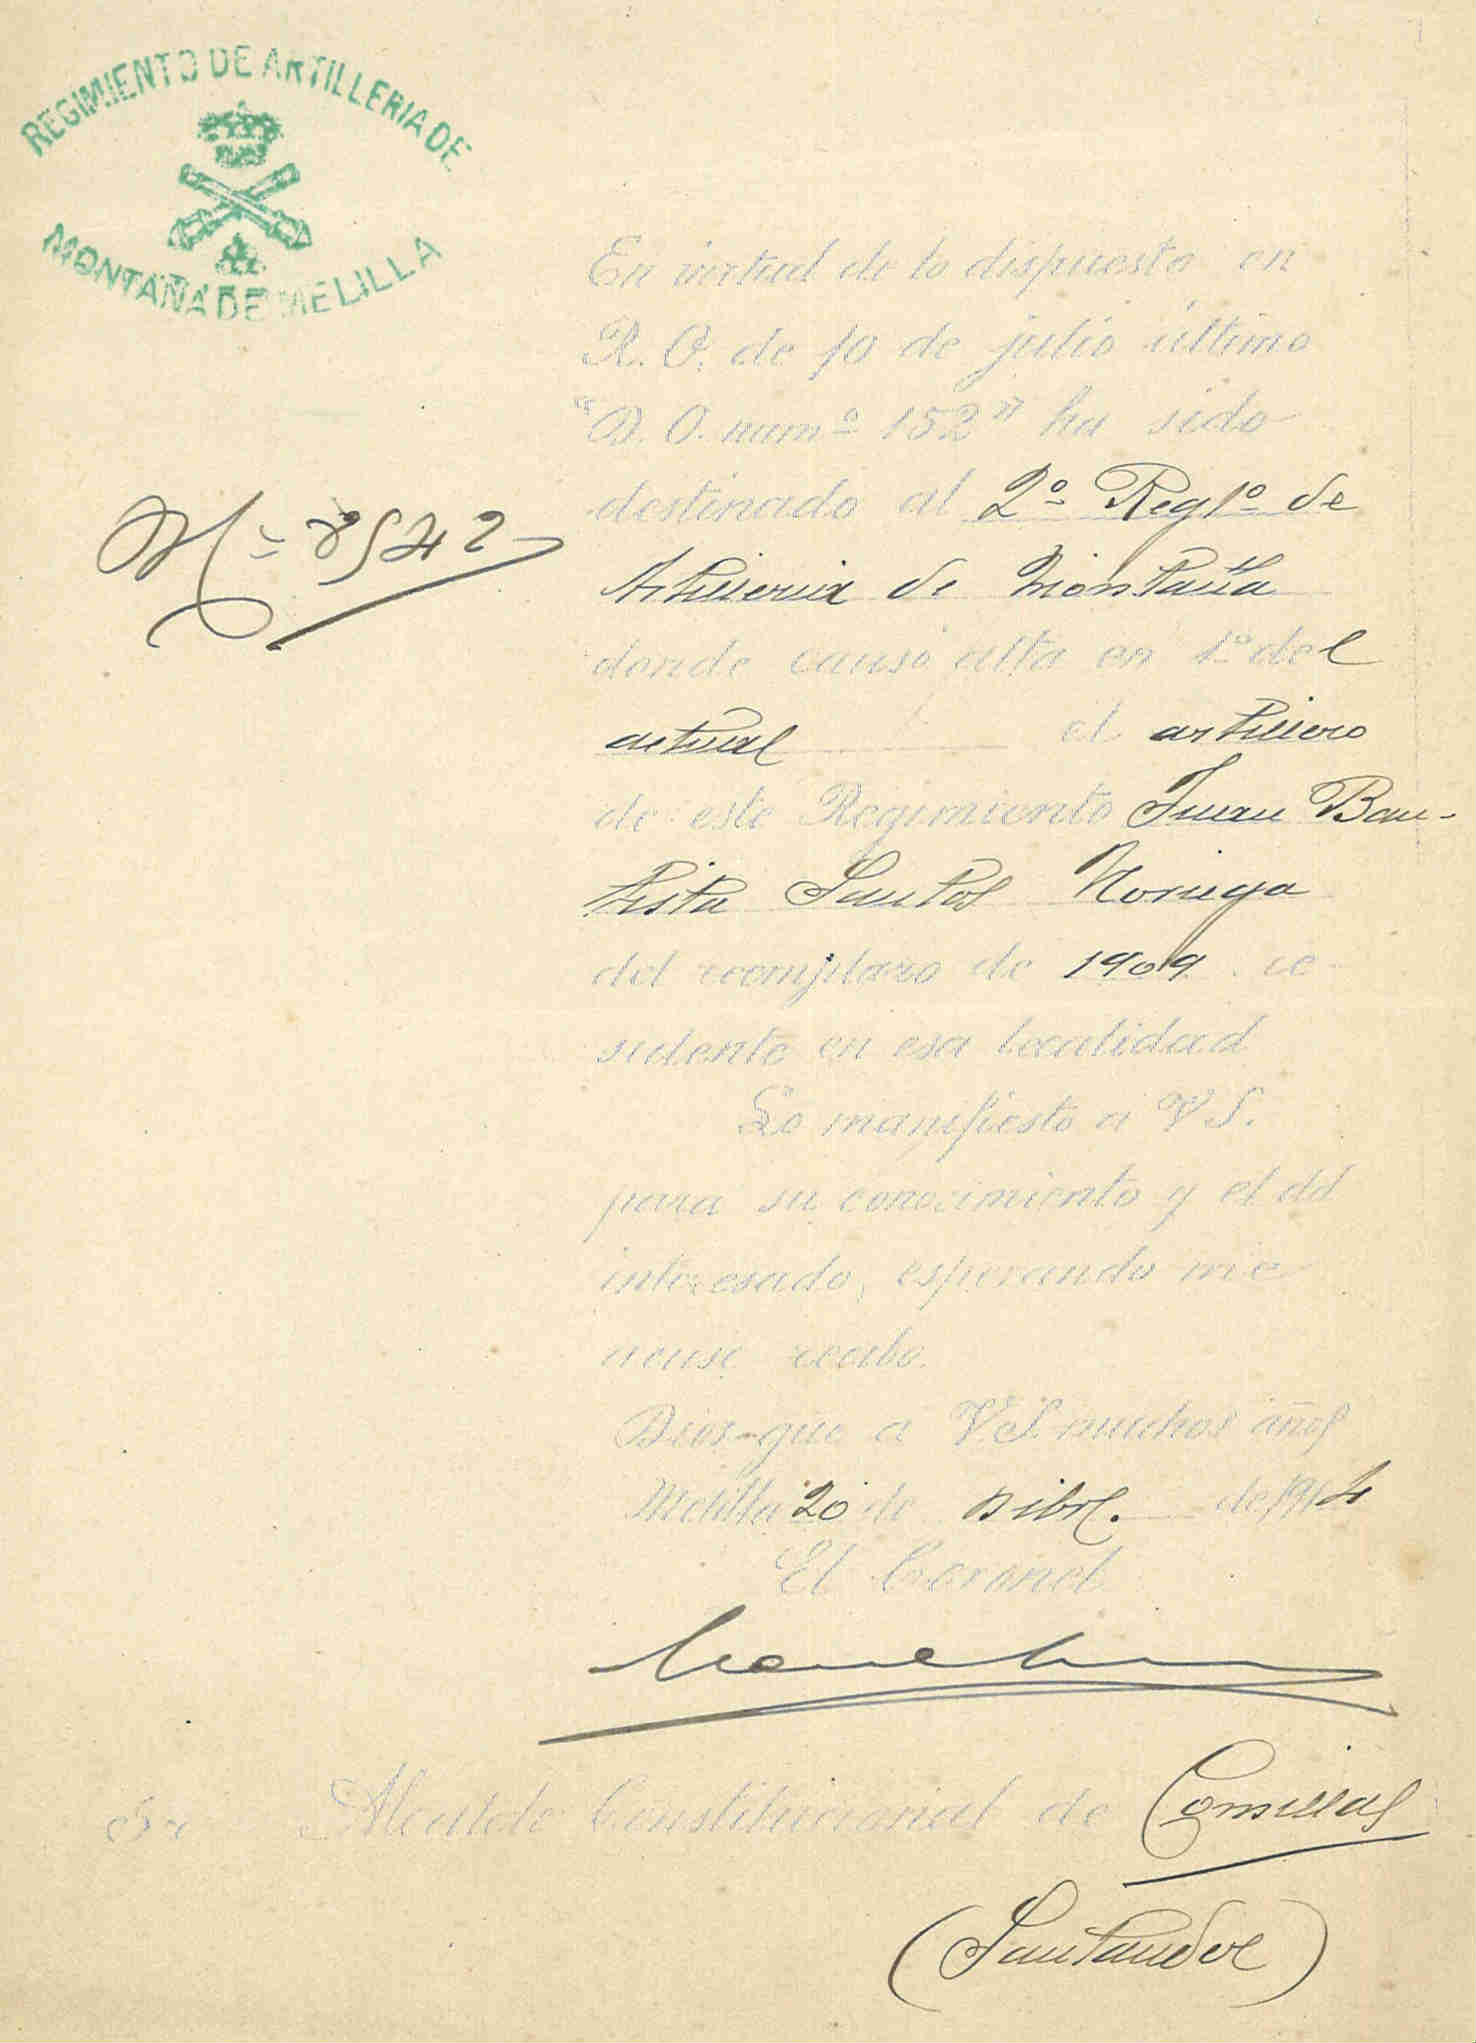 REGIMIENTO DE ARTILLERIA DE
MONTAÑA DE MELILLA
En virtud de lo dispuesto en
R. O. de 10 de julio último
"D. O. numº 152" ha sido
destinado al 2º Regtº de
Artilleria de Montaña
donde causó alta en 1º del
actual el artillero
de este Regimiento Juan Bau-
tista Santos Noriega
del reemplazo de 1909 re-
sidente en esa localidad
Lo manifiesto a V S.
para su conocimiento y el del
interesado, esperando me
acuse recibo.
Dios gue a V.S. muchos años
Melilla 20 de Dibre. de 1914
El Coronel
Sr Alcalde Constitucional de Comillas
(Santander)